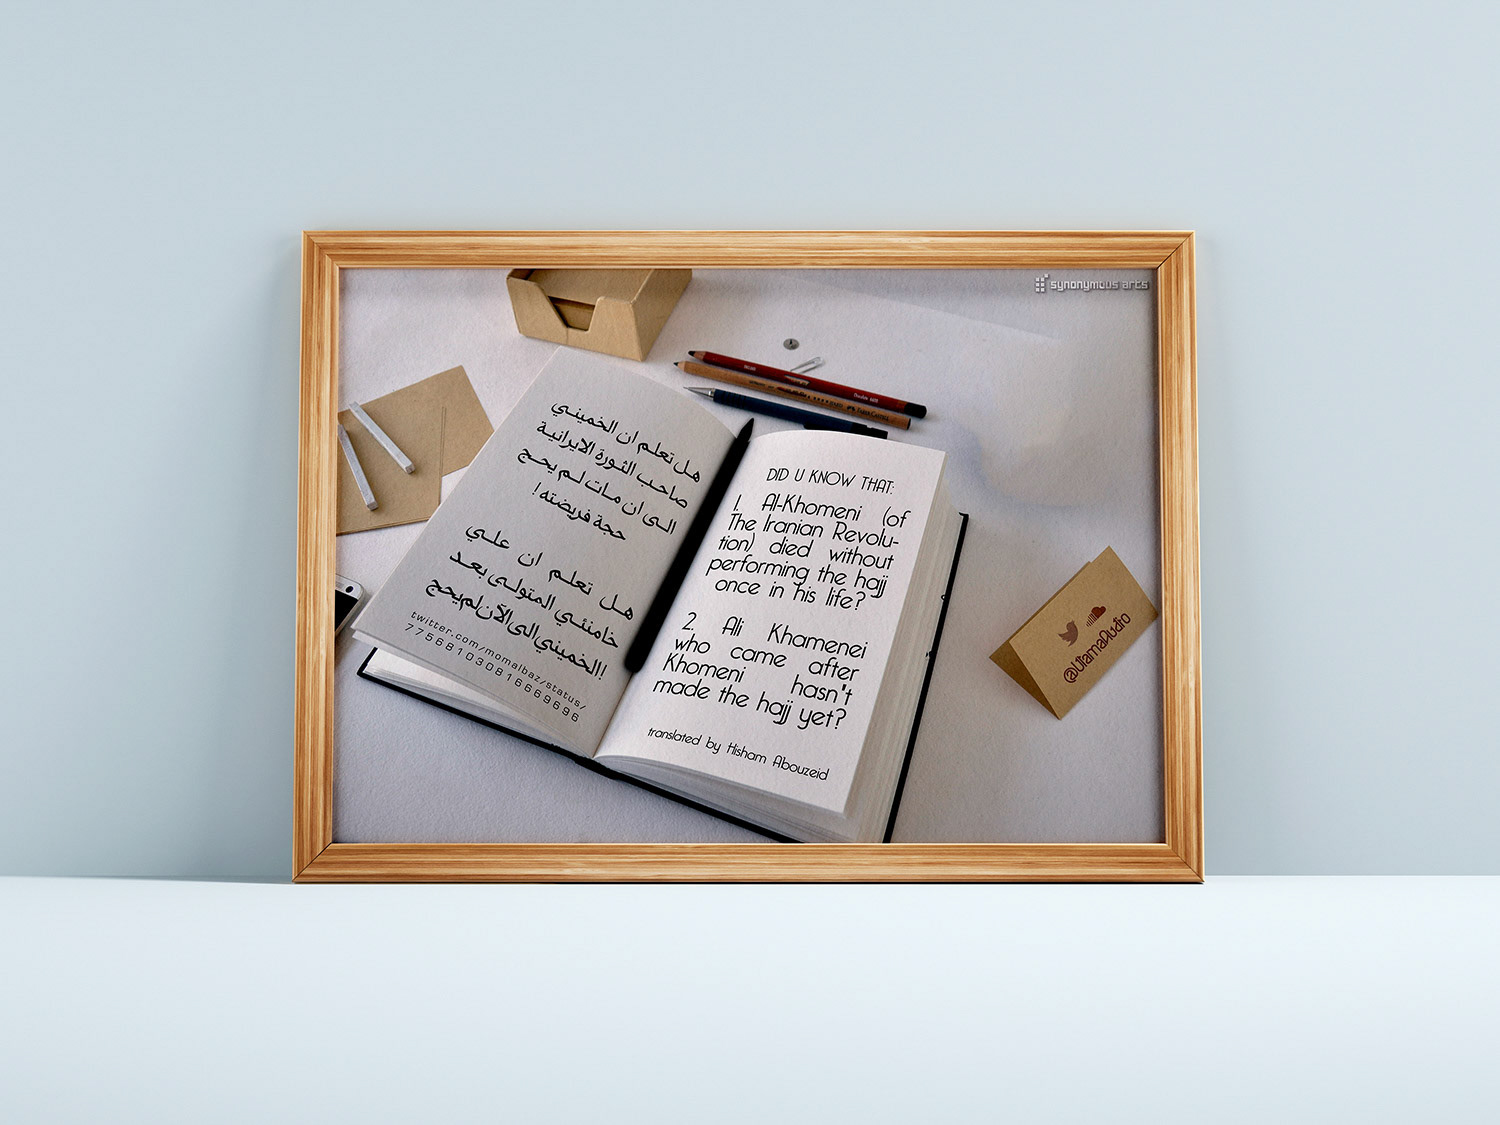 synonymous arts
هل تعلم ان الخميني
صاحب الثورة الايرانية
الى ان مات لم يحج
حجة فريضته !
هل تعلم ان علي
خامنئي المتولى بعد
الخميني الى الآن لم يحج!!
twitter.com/momalbaz/status/
775681030816669696
DID U KNOW THAT:
1. Al-Khomeni (of
The Iranian Revolu-
tion) died without
performing the hajj
once in his life?
2. Ali Khamenei
who came after
Khomeni hasn't
made the hajj yet?
translated by Hisham Abouzeid
@UlamaAudio